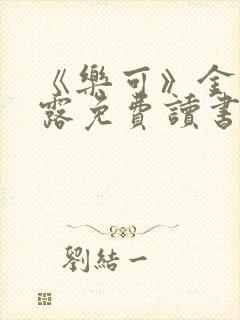 《樂可》全
露免費讀書
劉結一